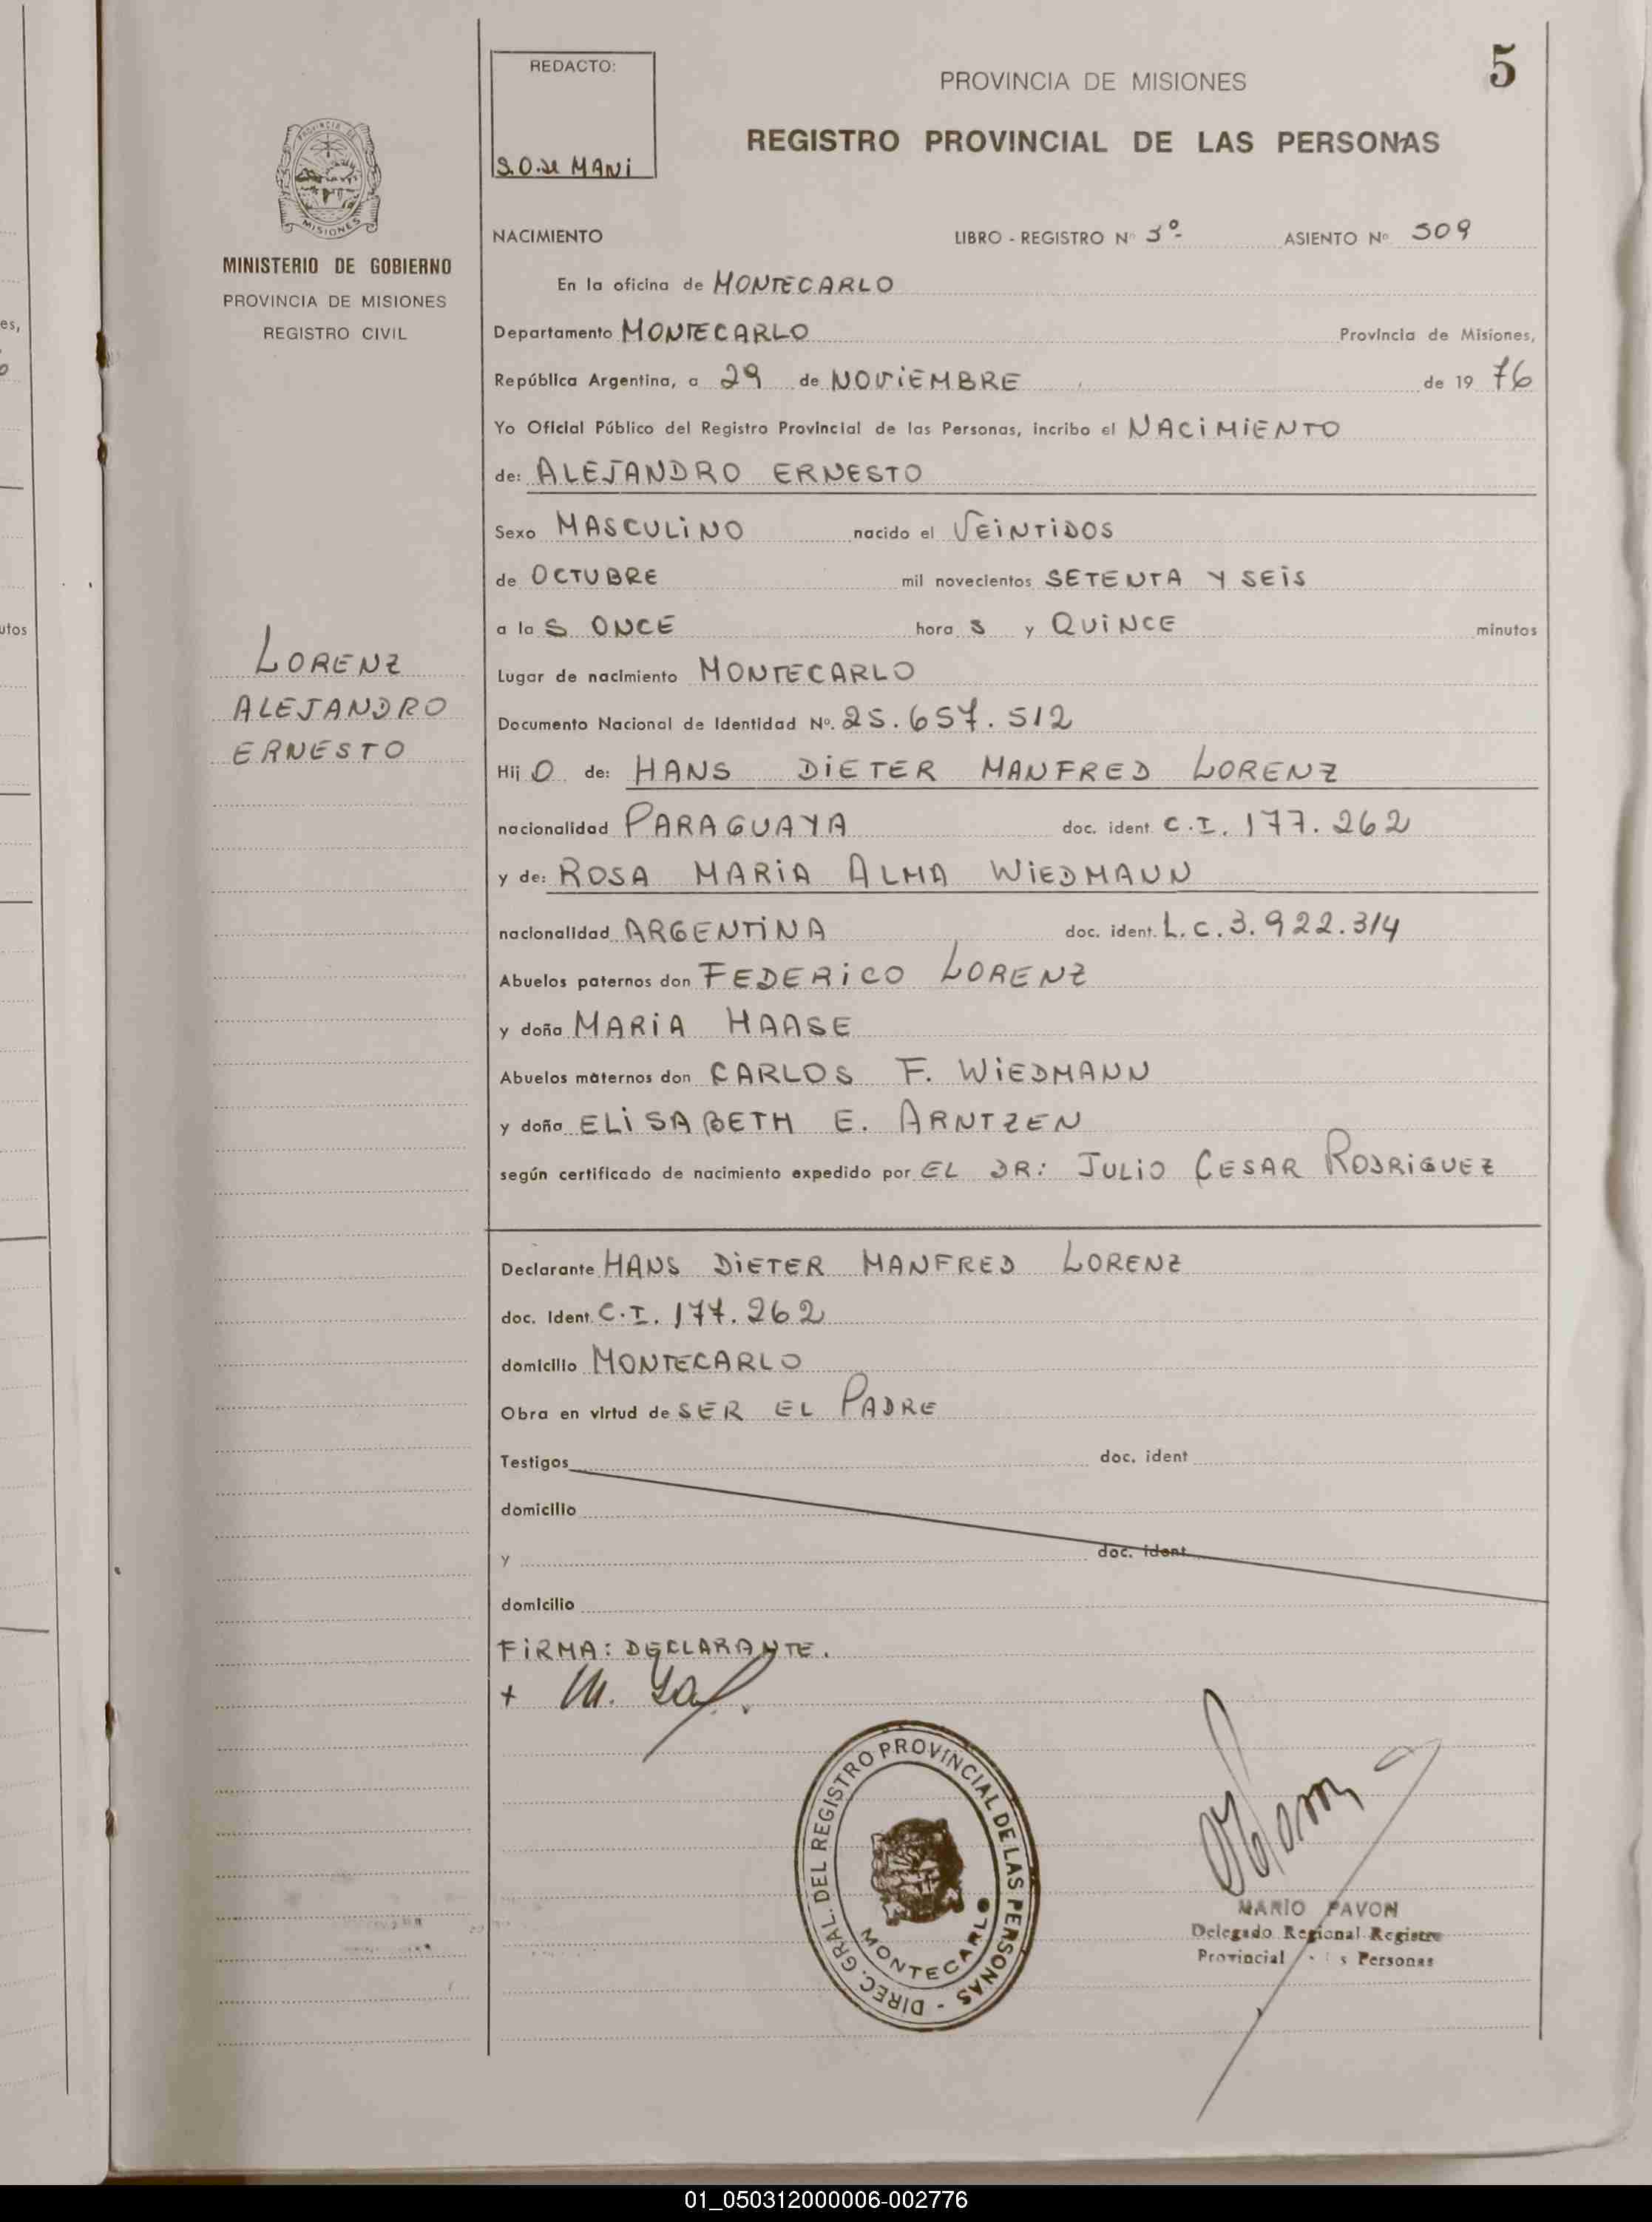 REDACTO:
S.O.de MANi
PROVINCIA DE MISIONES
5
REGISTRO PROVINCIAL DE LAS PERSONAS
PROVINCIA DE
MISIONES
MINISTERIO DE GOBIERNO
PROVINCIA DE MISIONES
REGISTRO CIVIL
NACIMIENTO LIBRO - REGISTRO Nº 3º- ASIENTO Nº 509
En la oficina de MONTECARLO
Departamento MONTECARLO Provincia de Misiones,
República Argentina, a 29 de NOViEMBRE de 19 76
Yo Oficial Público del Registro Provincial de las Personas, incribo el NACiMiENTO
de: ALEJANDRO ERNESTO
Sexo MASCULiNO nacido el VEiNTiDOS
de OCTUBRE mil novecientos SETENTA Y SEiS
a la S ONCE hora S y QUiNCE minutos
Lugar de nacimiento MONTECARLO
Documento Nacional de Identidad Nº. 25.657.512
Hij O de: HANS DiETER MANFRED LORENZ
nacionalidad PARAGUAYA doc. ident. C.I. 177.262
y de: ROSA MARiA ALMA WiEDMANN
nacionalidad ARGENTiNA doc. ident. L.C. 3.922.314
Abuelos paternos don FEDERiCO LORENZ
y doña MARiA HAASE
Abuelos maternos don CARLOS F. WiEDMANN
y doña ELiSABETH E. ARNTZEN
según certificado de nacimiento expedido por EL DR: JULiO CESAR RODRiGUEZ
LORENZ
ALEJANDRO
ERNESTO
Declarante HANS DiETER MANFRED LORENZ
doc. Ident. C.I. 177.262
domicilio MONTECARLO
Obra en virtud de SER EL PADRE
Testigos doc. ident
domicilio
y doc. ident
domicilio
FiRMA: DECLARANTE.
+ M.
DIREC. GRAL. DEL REGISTRO PROVINCIAL DE LAS PERSONAS -
MONTECARLO
MARIO PAVON
Delegado Regional Registro
Provincial Personas
es,
utos
01_050312000006-002776